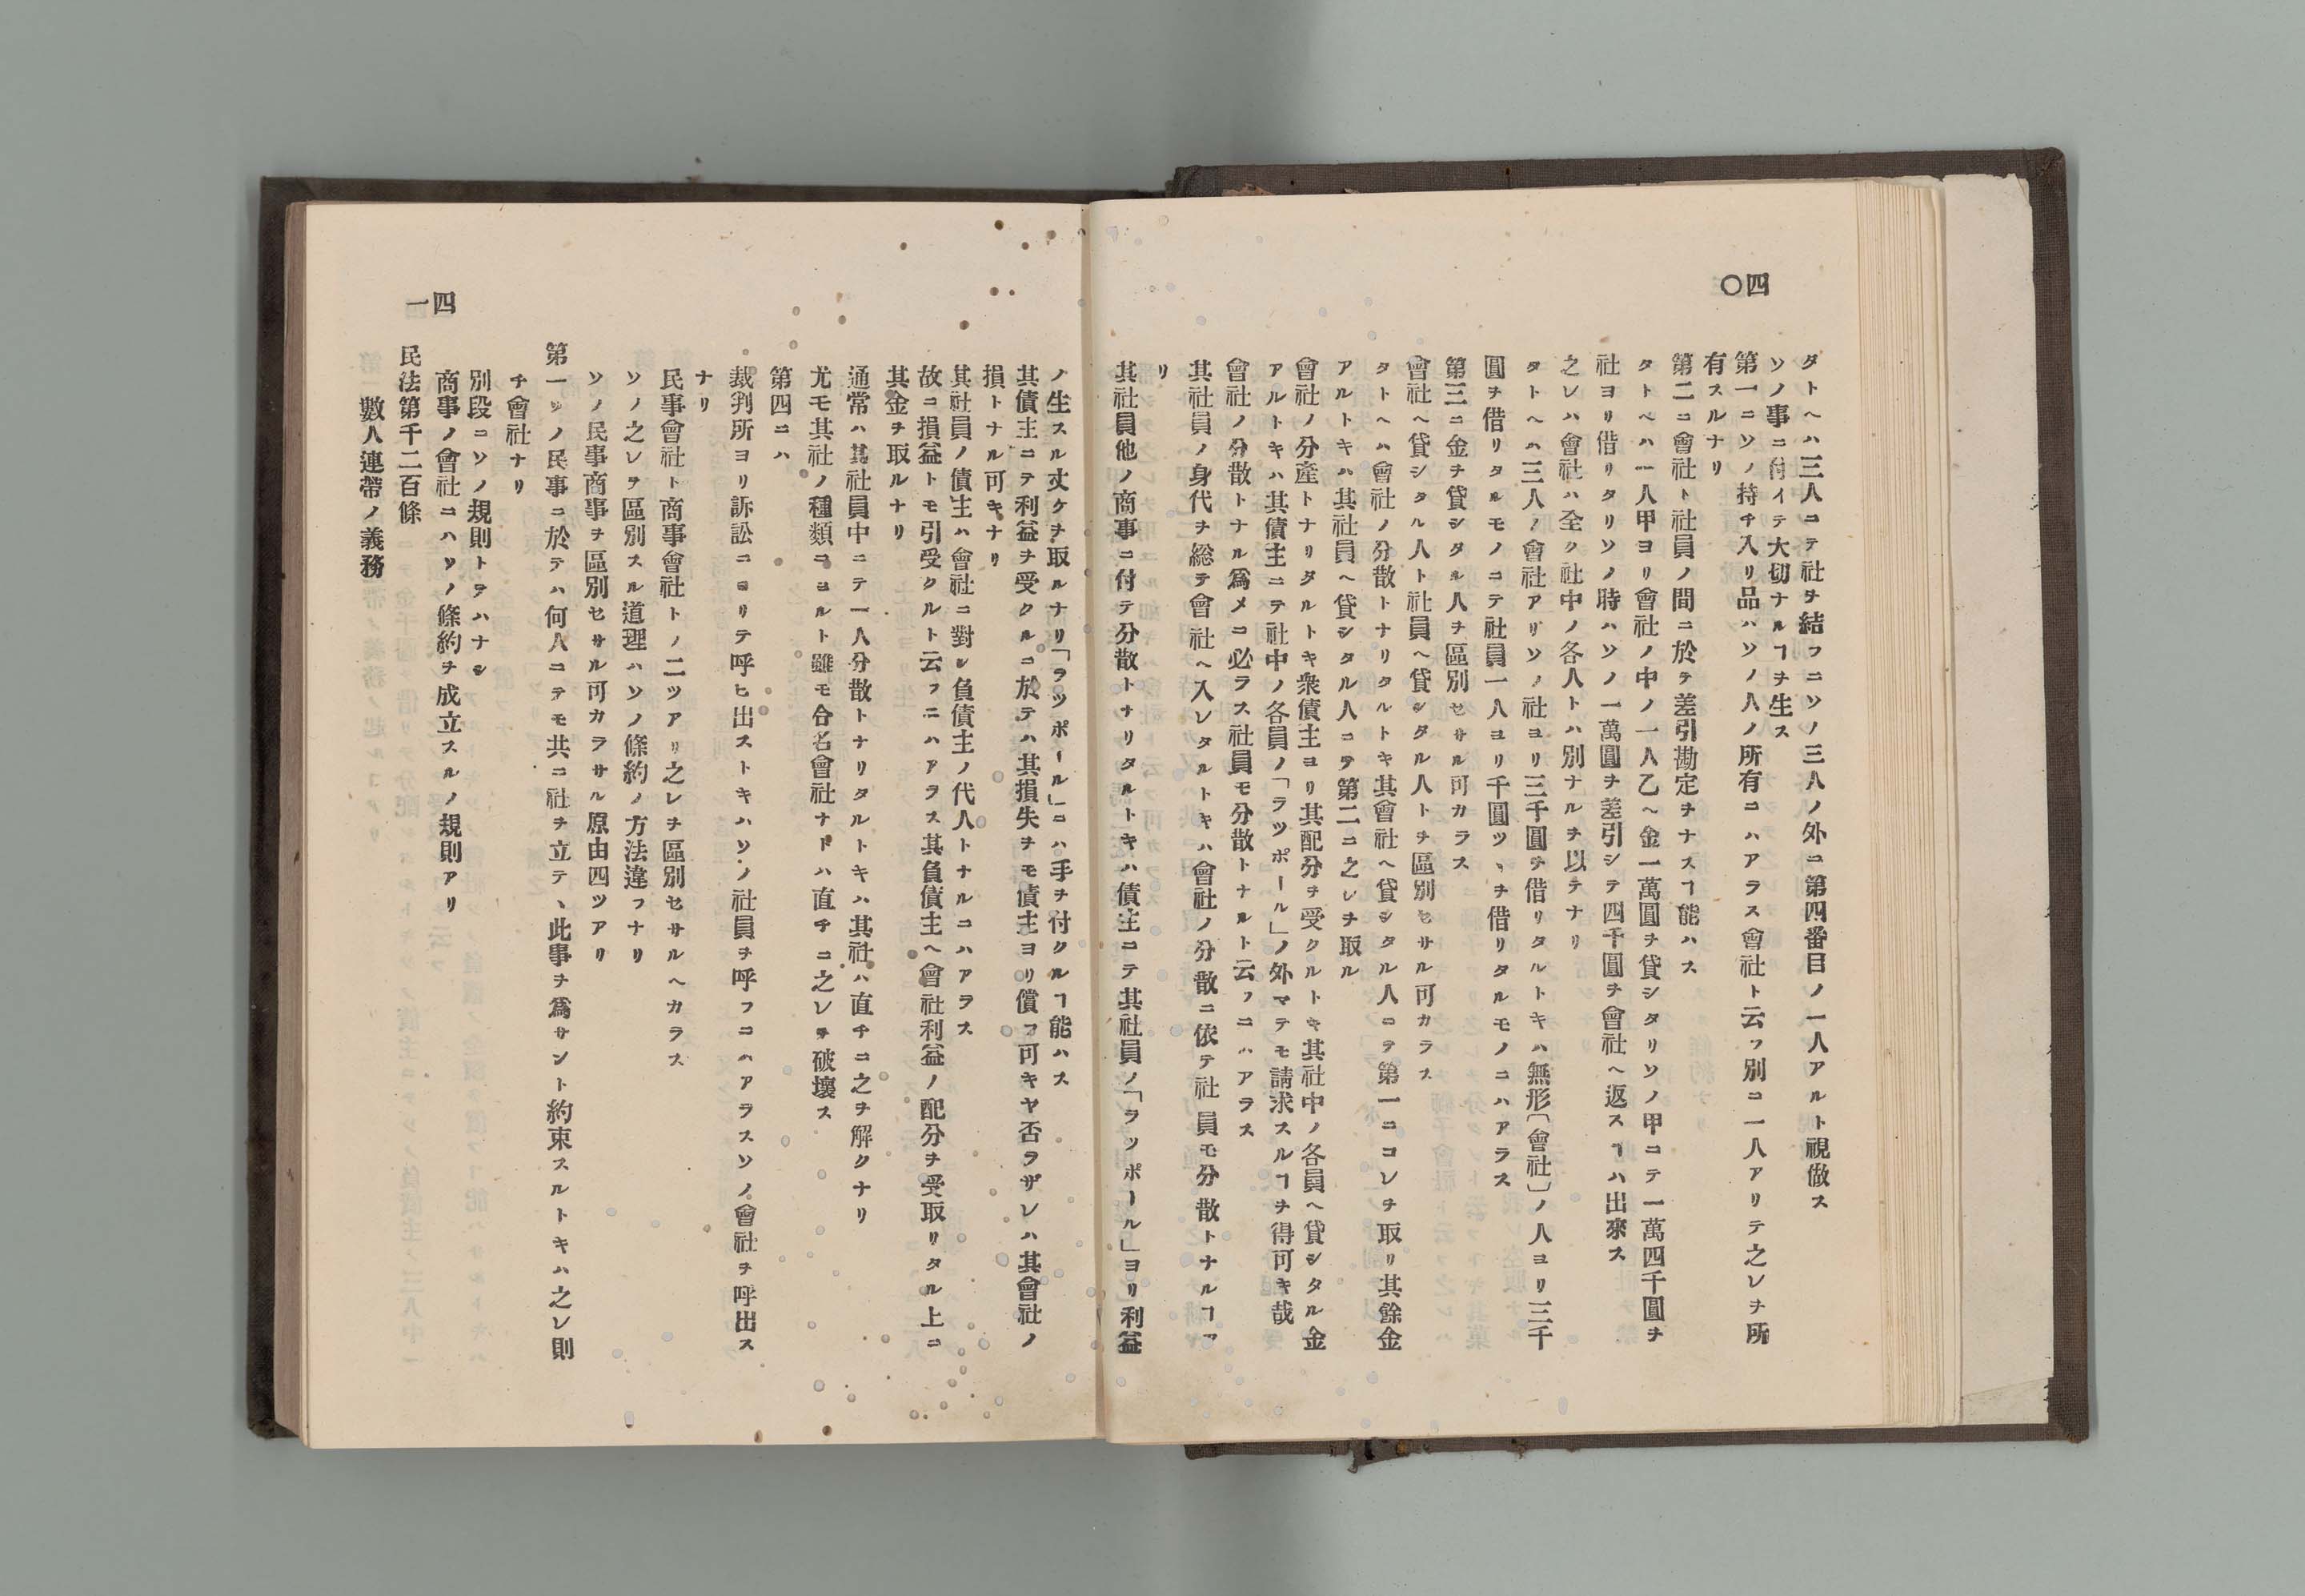 四〇
タトヘハ三人ニテ社ヲ結フニソノ三人ノ外ニ第四番目ノ一人アルト視做ス
ソノ事ニ付イテ大切ナルヿヲ生ス
第一ニソノ持チ入リ品ハソノ人ノ所有ニハアラス會社ト云フ別ニ一人アリテ之レヲ所
有スルナリ
第二ニ會社ト社員ノ間ニ於テ差引勘定ヲナスヿ能ハス
タトヘハ一人甲ヨリ會社ノ中ノ一人乙ヘ金一萬圓ヲ貸シタリソノ甲ニテ一萬四千圓ヲ
社ヨリ借リタリソノ時ハソノ一萬圓ヲ差引シテ四千圓ヲ會社ヘ返スヿハ出來ス
之レハ會社ハ全ク社中ノ各人トハ別ナルヲ以テナリ
タトヘハ三人ノ會社アリソノ社ヨリ三千圓ヲ借リタルトキハ無形〔會社〕ノ人ヨリ三千
圓ヲ借リタルモノニテ社員一人ヨリ千圓ツヽヲ借リタルモノニハアラス
第三ニ金ヲ貸シタル人ヲ區別セサル可カラス
會社ヘ貸シタル人ト社員ヘ貸シタル人トヲ區別セサル可カラス
タトヘハ會社ノ分散トナリタルトキ其會社ヘ貸シタル人ニテ第一ニコレヲ取リ其餘金
アルトキハ其社員ヘ貸シタル人ニテ第二ニ之レヲ取ル
會社ノ分產トナリタルトキ衆債主ヨリ其配分ヲ受クルトキ其社中ノ各員ヘ貸シタル金
アルトキハ其債主ニテ社中ノ各員ノ「ラツポール」ノ外マテモ請求スルヿヲ得可キ哉
會社ノ分散トナル爲メニ必ラス社員モ分散トナルト云フニハアラス
其社員ノ身代ヲ総テ會社ヘ入レタルトキハ會社ノ分散ニ依テ社員モ分散トナルヿア
リ
其社員他ノ商事ニ付テ分散トナリタルトキハ債主ニテ其社員ノ「ラツポール」ヨリ利益
ノ生スル丈ケヲ取ルナリ「ラツポール」ニハ手ヲ付クルヿ能ハス
其債主ニテ利益ヲ受クルニ於テハ其損失ヲモ債主ヨリ償フ可キヤ否ラザレハ其會社ノ
損トナル可キナリ
其社員ノ債主ハ會社ニ對シ負債主ノ代人トナルニハアラス
故ニ損益トモ引受クルト云フニハアラス其負債主ヘ會社利益ノ配分ヲ受取リタル上ニ
其金ヲ取ルナリ
通常ハ其社員中ニテ一人分散トナリタルトキハ其社ハ直チニ之ヲ解クナリ
尤モ其社ノ種類ニヨルト雖モ合名會社ナドハ直チニ之レヲ破壞ス
第四ニハ
裁判所ヨリ訴訟ニヨリテ呼ヒ出ストキハソノ社員ヲ呼フニハアラスソノ會社ヲ呼出ス
ナリ
民事會社ト商事會社トノ二ツアリ之レヲ區別セサルヘカラス
ソノ之レヲ區別スル道理ハソノ條約ノ方法違フナリ
ソノ民事商事ヲ區別セサル可カラサル原由四ツアリ
第一ソノ民事ニ於テハ何人ニテモ共ニ社ヲ立テ、此事ヲ爲サント約束スルトキハ之レ則
チ會社ナリ
別段ニソノ規則トテハナシ
商事ノ會社ニハソノ條約ヲ成立スルノ規則アリ
民法第千二百條
數人連帶ノ義務
四一